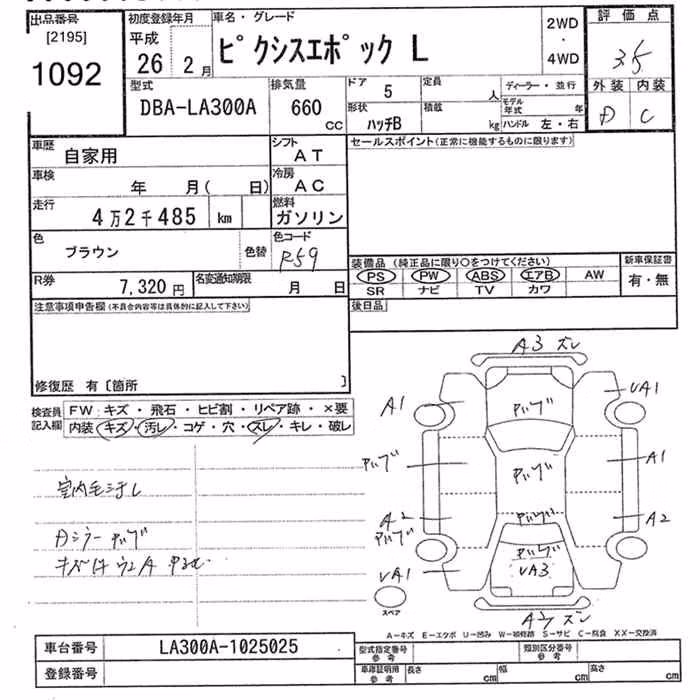 出品番号
[2195]
1092
初度登録年月
平成
26 2月
車名・グレード
ピクシスエポック L
2WD
・
4WD
評価点
3.5
外装 内装
D C
型式
DBA-LA300A
排気量
660
CC
ドア 5
形状
ハッチB
定員 人
積載 kg
ディーラー・並行
モデル年式 年
ハンドル 左・右
車歴
自家用
シフト
AT
車検
年 月( 日)
冷房
AC
走行
4万2千485 km
燃料
ガソリン
色
ブラウン
色替
色コード
R59
R券
7,320円
名変通知期限
月 日
セールスポイント(正常に機能するものに限ります)
装備品(純正品に限り○をつけてください)
PS PW ABS エアB AW
SR ナビ TV カワ
新車保証書
有・無
後日品
注意事項申告欄(不具合内容等は具体的に記入して下さい)
修復歴 有〔箇所 〕
検査員記入欄
FW:キズ・飛石・ヒビ割・リペア跡・×要
内装:キズ・汚レ・コゲ・穴・スレ・キレ・破レ
室内毛ヨゴレ
A3 ズレ
A1
UA1
A1
A2
A2
UA1
UA3
スペア
A−キズ E−エクボ U−凹み W−補修跡 S−サビ C−腐食 XX−交換済
車台番号
LA300A-1025025
登録番号
型式指定番号
参考
類別区分番号
参考
車庫証明用
参考
長さ cm
幅 cm
高さ cm